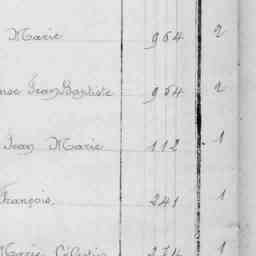 Marie 964 2
Jean Baptiste 954 2
Jean Marie 112 1
François 241 1
Marie 1